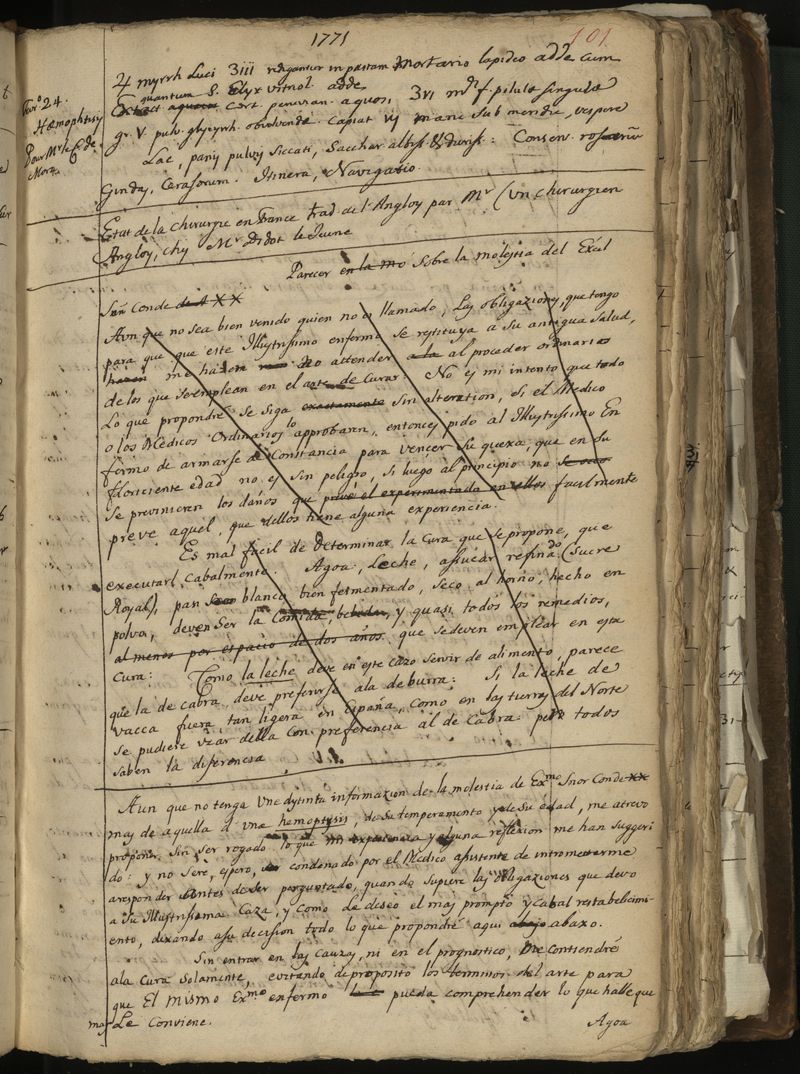 1771
101
♃ myrrh Luci ʒiii redigantur in pastam mortario lapideo adde cum
quantum S. Elyx vitriol. adde
Extract aquosa Cort. peruvian. aquosi ʒvi m. f. pilulæ singulæ
gr. V pulv. glycyrrh. obvolvendæ. Capiat vj mane sub meridie, vespere
Lac, panis pulvis siccati, Sacchar albiss & duriss: Conserv. rosarum
Cynday, Carasorum. Itinera, Navigatio.
24.
Hæmophtysis
Pour Mr le C. de
Mora
Etat de la Chirurgie en France trad. de l'Angloy par Mr (Un Chirurgien
Angloy, chy Mr Didot le Jeune
Parecer en la mo Sobre la molestia del Excel
Sñr Conde de A X X
Aun que no sea bien venido quien no es llamado, Las obligaziony, que tengo
para que que este Illustrissimo enfermo Se restituya a Su antigua Salud,
hazen me hazen no attender a la al proceder ordinario
de los que Se emplean en el arte de Curar. No es mi intento que todo
Lo que propondré Se Siga exactamente Sin alteration, Si el Medico
o los Medicos Ordinarios lo approbaren, entonces pido al Illustrissimo En
fermo de armarse de Constancia para vencer Su quexa, que en Su
floriciente edad no es Sin peligro, Si luego al principio no se
Se previnieren los daños que prevé el experimentado en ellos facilmente
preve aquel, que dellos tiene alguna experiencia.
Es mas facil de determinar la Cura que Se propone, que
executarl Cabalmente. Agoa, Leche, assucar refinado (Sucre
Royal), pan Seco blanco bien fermentado, Seco al horno, hecho en
polvo, deven Ser la Comida, bebida, y quasi todos los remedios,
al menos por espacio de dos años. que Se deven emplear en esta
Cura: Como la leche deve en este Cazo Servir de alimento, parece
que la de cabra deve preferirse a la de burra: Si la leche de
vacca fuera tan ligera en España, Como en las tierras del Norte
Se pudiera uzar della Con preferencia al de Cabra: pero todos
Saben la diferencia
Aun que no tenga Une dystinta informazion de la molestia de Exmo Snor Conde X X
may de aquella d una hemoptysis, de Su temperamento y de Su edad, me atrevo
proponer Sin Ser rogado lo que mi experiencia y alguna reflexion me han Suggeri
do: y no Seré, espero, condenado por el Medico assistente de intrometterme
a responder antes de Ser preguntado, quando Supiere las obligaziones que devo
a Su Illustrissima Caza, y Como de deseo el may prompto y Cabal restabelicimi-
ento, dexando a Su decision todo lo que propondré aqui abajo abaxo.
Sin entrar en las Cauzas, ni en el prognostico, Me Contiendré
a la Cura Solamente, evitando de proposito los terminos del arte para
que El mismo Exmo enfermo pueda Comprehender lo que halle que
mas Le Conviene.
Agoa